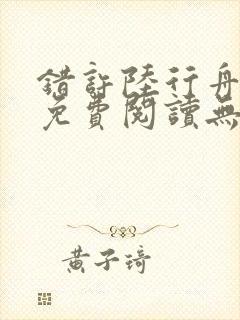 錯許陸行舟
免費閱讀無
黃子琦